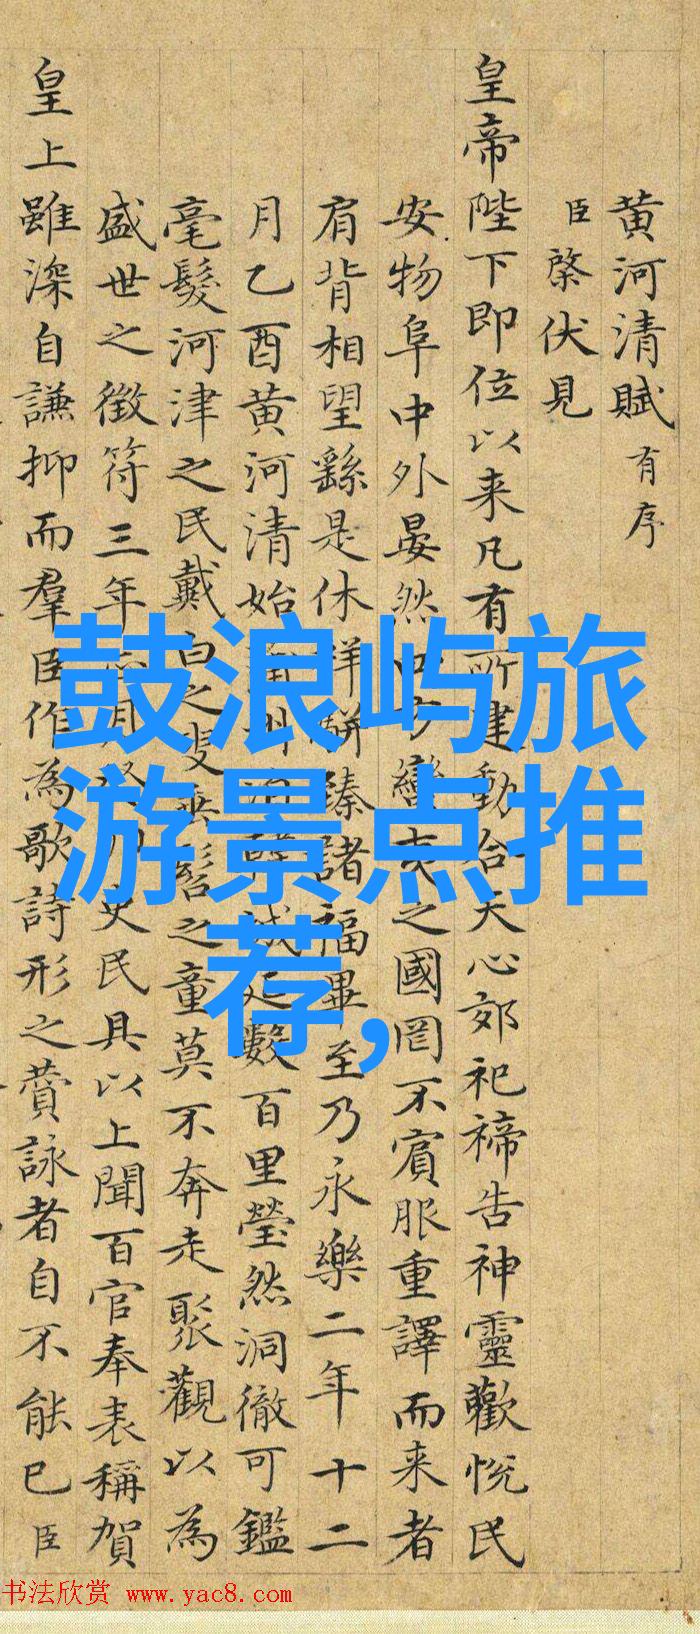 黄河清賦 有序
臣棨伏見
皇帝陛下即位以来凡有所建動合天心郊祀禘告神靈歡悅民
安物阜中外晏然四方蠻夷之國罔不賓服重譯而来者
肩背相望繇是休祥駢臻諸福畢至乃永樂二年十二
月乙酉黄河清始蒲州韓城延數百里瑩然洞徹可鑑
毫髮河津之民戴白之叟垂髫之童莫不奔走聚觀以為
盛世之徵符三年正月史民具以上聞百官奉表稱賀
皇上雖深自謙抑而羣臣作為歌詩形之賛詠者自不能已臣
鼓浪屿旅
游景点推
荐,
书法欣赏 www.yac8.com